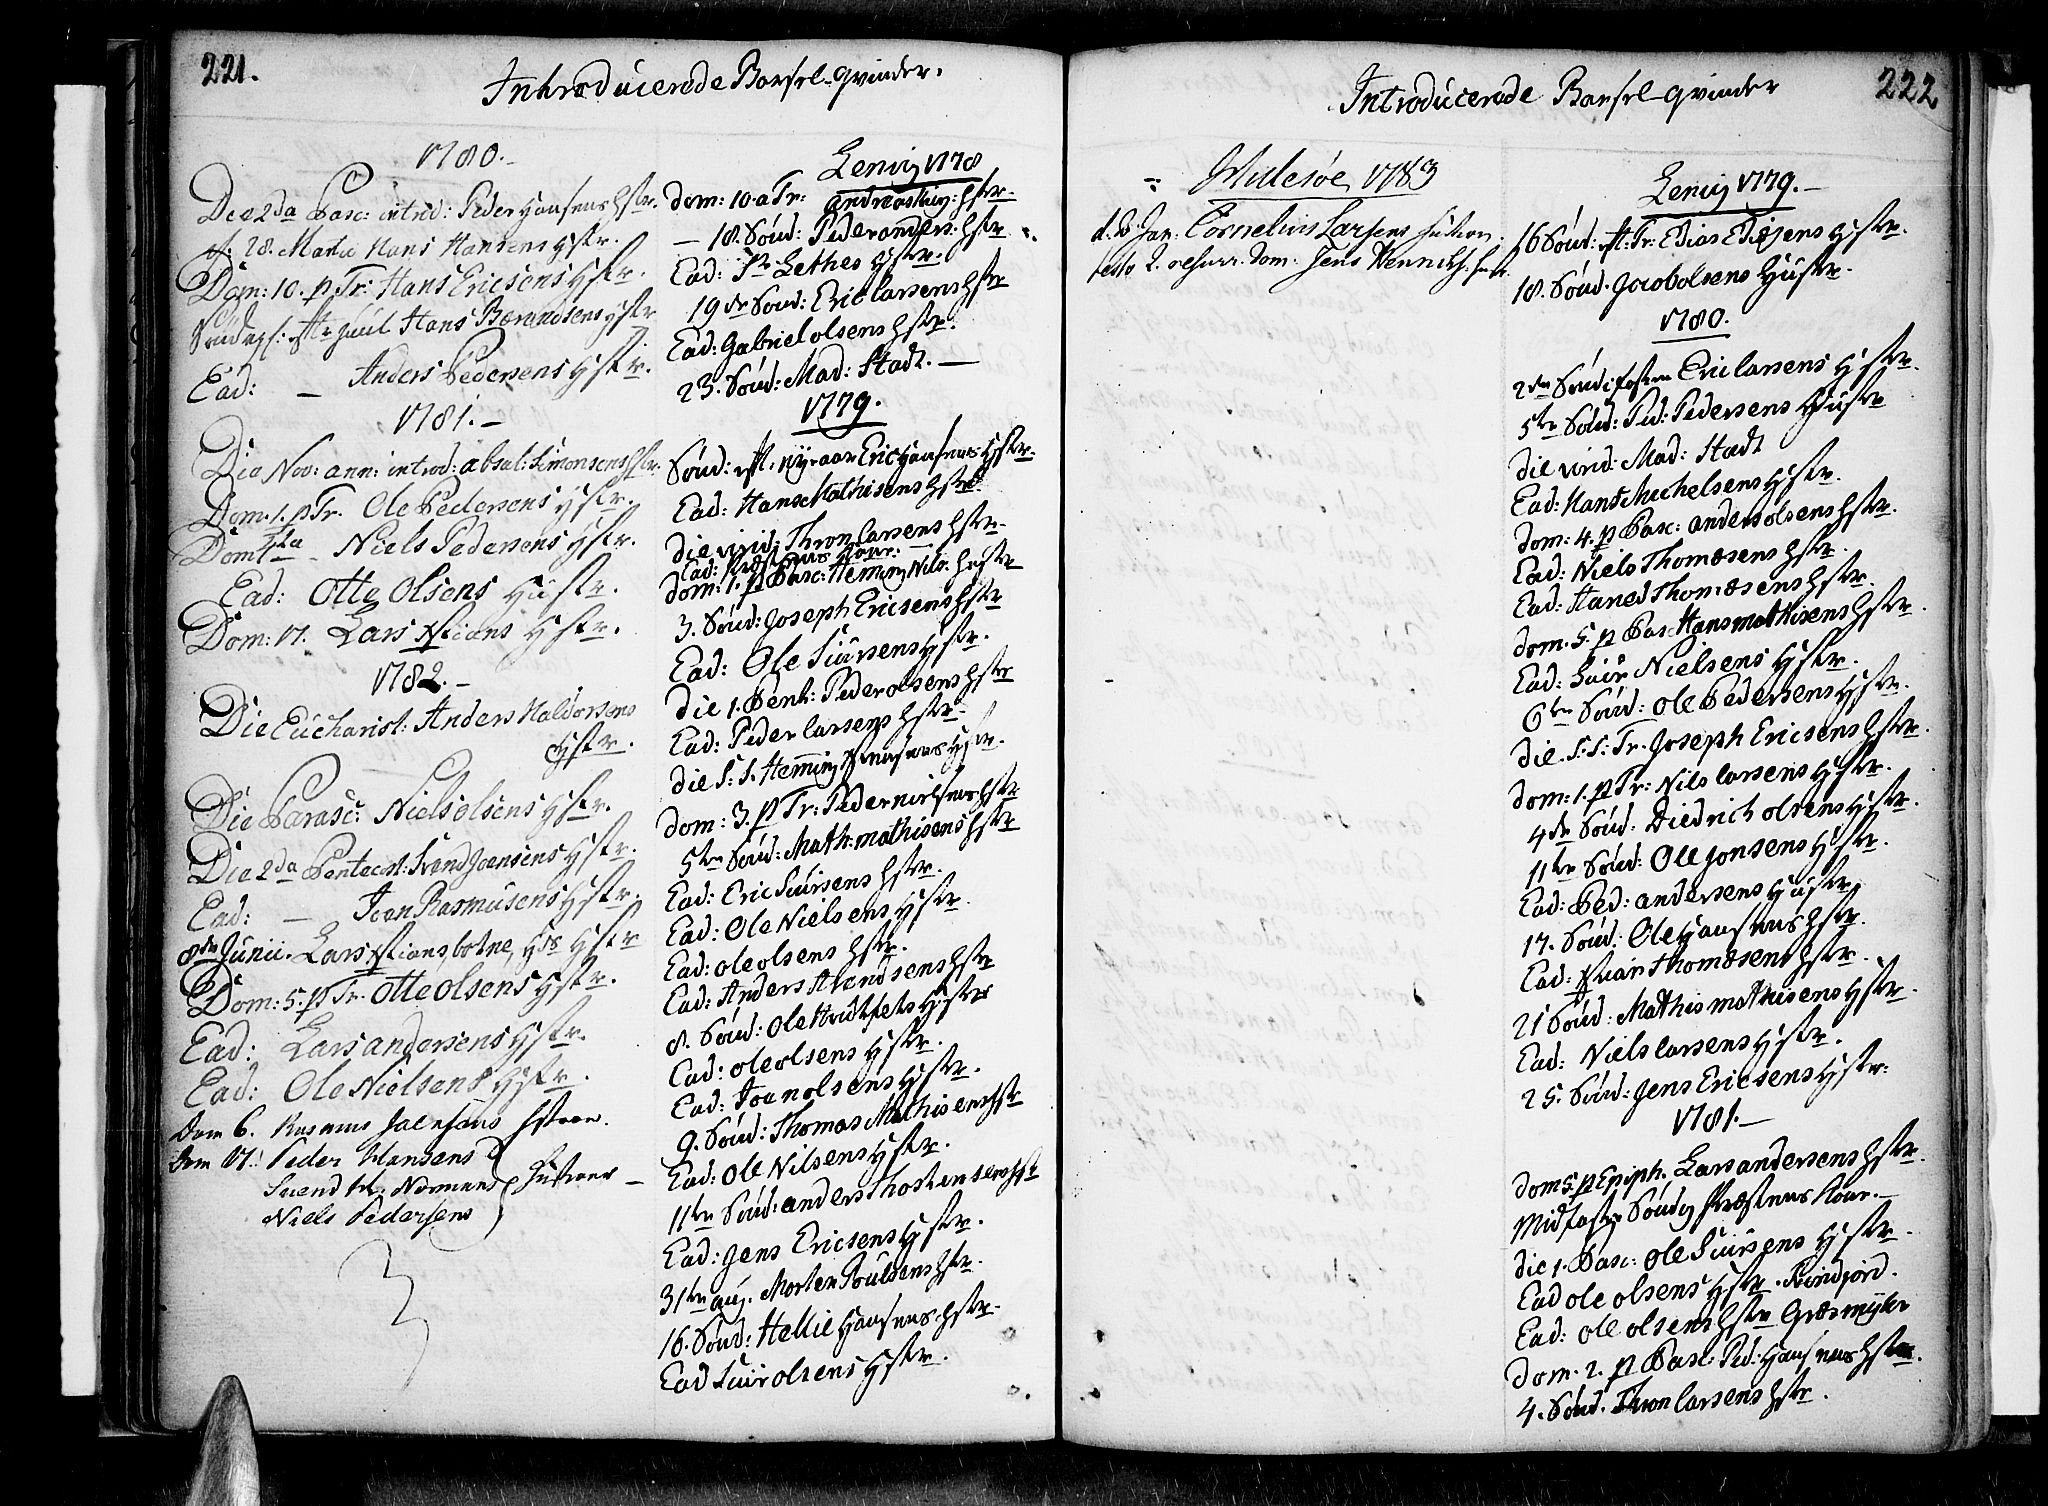 221.
Introducerede Barsel-qvinder.
1780.-
Die 2da Pasc: introd: Peder Hansens Hstr.
28. Martii Hans Hansens Hstr.
Dom: 10. p Tr: Hans Ericsens Hstr.
Hans Berendsens Hstr
Ead: - Anders Pedersens Hstr.
1781.-
Die Nov: ann: introd: Absal: Simonsens Hstr.
Dom. 1. p Tr. Ole Pedersens Hstr.
Dom - Niels Pedersens Hstr.
Ead: Otte Olsens Hustr.
Dom: 17. Lars Xstians Hstr.
1782.-
Die Eucharist: Anders Haldorsens
Hstr.
Die Parasc: Niels Olsens Hstr.
Die 2da Pentecost: Svend Joensens Hstr.
Ead: - Joen Rasmusens Hstr.
8de Junii. Lars Xstians botne, Hstr
Dom: 5. p Tr: Otte Olsens Hstr.
Ead: Lars Andersens Hstr.
Ead: Ole Nielsens Hstr.
Dom 6. Rasmus Joensens Hstrue.
Dom 17. Peder Hansens
Svend Hustruer -
Niels Pedersens
Lenvig 1778
Dom: 10. a Tr: Hstr.
- 18. Sønd: Peder Anders. Hstr
Ead: Sr Lethes Hstr.
19de Sønd: Eric Larsens Hstr
Ead: Gabriel Olsens Hstr.
23. Sønd: Mad: Stadt. -
1779.
Sønd: eft. nyeaar Eric Hansens Hstr.
Ead: Hans Mathisens Hstr.
Die virid: Thron Larsens Hstr.
Ead: Præstens Kone.
Dom: 1. p Pasc: Heming Nils. Hustr
3. Sønd: Joseph Ericsens Hstr
Ead: Ole Siursens Hstr.
Die 1. Pent: Peder Olsens Hstr
Ead: Peder Larsens Hstr.
Die S: S. Heming Hstr.
Dom: 3. p Tr: Peder Nielsens Hstr
5te Sønd: Math: Mathisens Hstr
Ead: Eric Siursens Hstr.
Ead: Ole Nielsens Hstr.
Ead: Ole Olsens Hstr.
Ead: Anders Arendsens Hstr
8. Sønd: Ole Hvidtfets Hstr
Ead: Ole Olsens Hstr.
Ead: Joen Olsens Hstr.
9. Sønd: Thomas Mathisens Hstr
Ead: Ole Nilsens Hstr.
11te Sønd: Anders Thostensens Hstr
Ead: Jens Ericsens Hstr.
31te Aug. Morten Poulsens Hstr.
16. Sønd: Hellie Hansens Hstr.
Ead Siur Olsens Hstr.
Introducerede Barsel-qvinder
222
1783
Jan: Cornelius Larsens Hustrue.
Dom. Jens
Lenvig 1779.-
16 Sønd: eft. Tr. Edias Ediesens Hstr.
18. Sønd. Jacob Olsens Hustr.
1780.
2den Sønd: i fasten Eric Larsens Hstr.
5te Sønd: Ped: Pedersens Hustr
Die virid: Mad: Stadt
Ead: Hans Michelsens Hstr.
Dom: 4. p Pasc: Anders Olsens Hstr.
Ead: Niels Thomæsens Hstr.
Ead: Haned Thomæsens Hstr.
Dom. 5. p Pasc Hans Mathisens Hstr.
Ead: Siur Nielsens Hstr.
6te Sønd: Ole Pedersens Hstr.
Die. S: S: Tr. Joseph Ericsens Hstr.
Dom: 1. p Tr: Nils Larsens Hstr.
4de Sønd: Diedrich Olsens Hstr.
11te Sønd: Ole Jonsens Hstr.
Ead: Ped: Andersens Hustr
17. Sønd: Ole Hansens Hstr.
Ead: Thomæsens Hstr.
21 Sønd: Mathis Mathisens Hstr.
Ead: Niels Larsens Hstr.
25. Sønd: Jens Ericsens Hstr:
1781.-
Dom 5. p Epiph. Lars Andersens Hstr.
Midfaste Søndag Præstens Kone.-
Die 1. Pasc: Ole Siursens Hstr.
Ead Ole Olsens Hstr. Rindfjord.
Ead: Ole Olsens Hstr Græsmyhr
Dom. 2. p Pasc: Ped: Hansens Hstr.
4. Sønd. Thron Larsens Hstr.